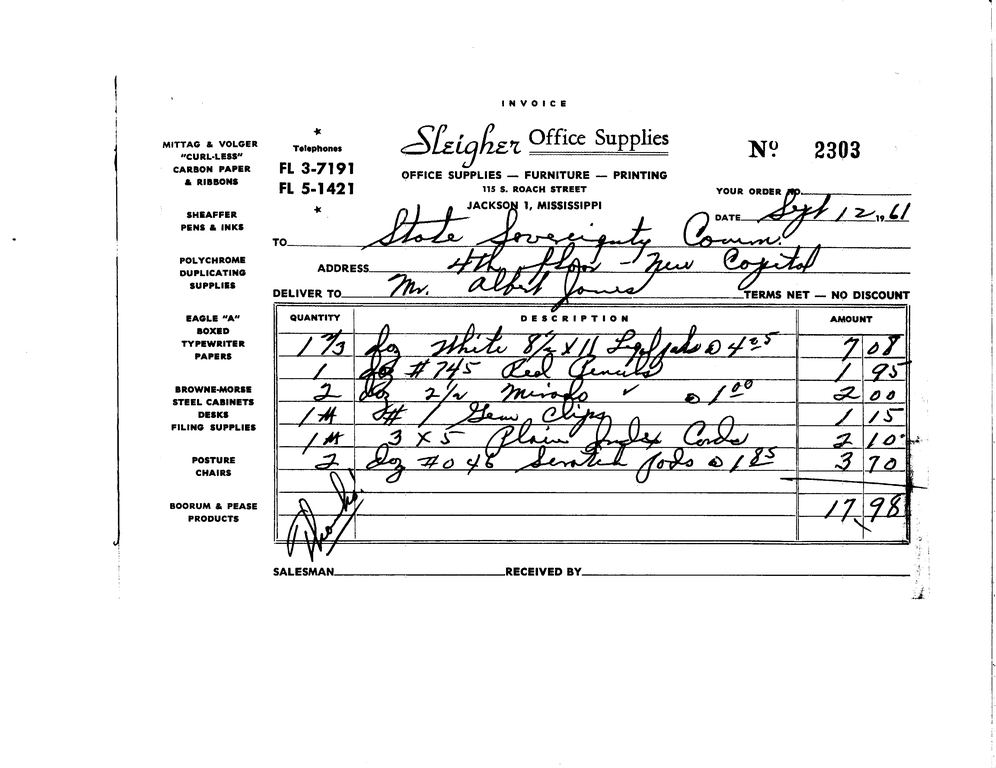 INVOICE
Sleigher Office Supplies
OFFICE SUPPLIES — FURNITURE — PRINTING
115 S. ROACH STREET
JACKSON 1, MISSISSIPPI
★
Telephones
FL 3-7191
FL 5-1421
★
Nº 2303
YOUR ORDER NO.
DATE Sept 12, 1961
TO State Sovereignty Comm.
ADDRESS 4th floor - New Capitol
DELIVER TO Mr. Albert Jones TERMS NET — NO DISCOUNT
MITTAG & VOLGER
"CURL-LESS"
CARBON PAPER
& RIBBONS
SHEAFFER
PENS & INKS
POLYCHROME
DUPLICATING
SUPPLIES
EAGLE "A"
BOXED
TYPEWRITER
PAPERS
BROWNE-MORSE
STEEL CABINETS
DESKS
FILING SUPPLIES
POSTURE
CHAIRS
BOORUM & PEASE
PRODUCTS
QUANTITY DESCRIPTION AMOUNT
1 2/3 doz White 8 1/2 x 11 Legal pads @ 4 25 7 08
1 doz # 745 Red Pencils 1 95
2 doz 2 1/2 Mirado ✓ @ 1 00 2 00
1 M # 1 Gem Clips 1 15
1 M 3 x 5 Plain Index Cards 2 10
2 doz # 046 Scratch Pads @ 1 85 3 70
17 98
Thanks!
SALESMAN RECEIVED BY